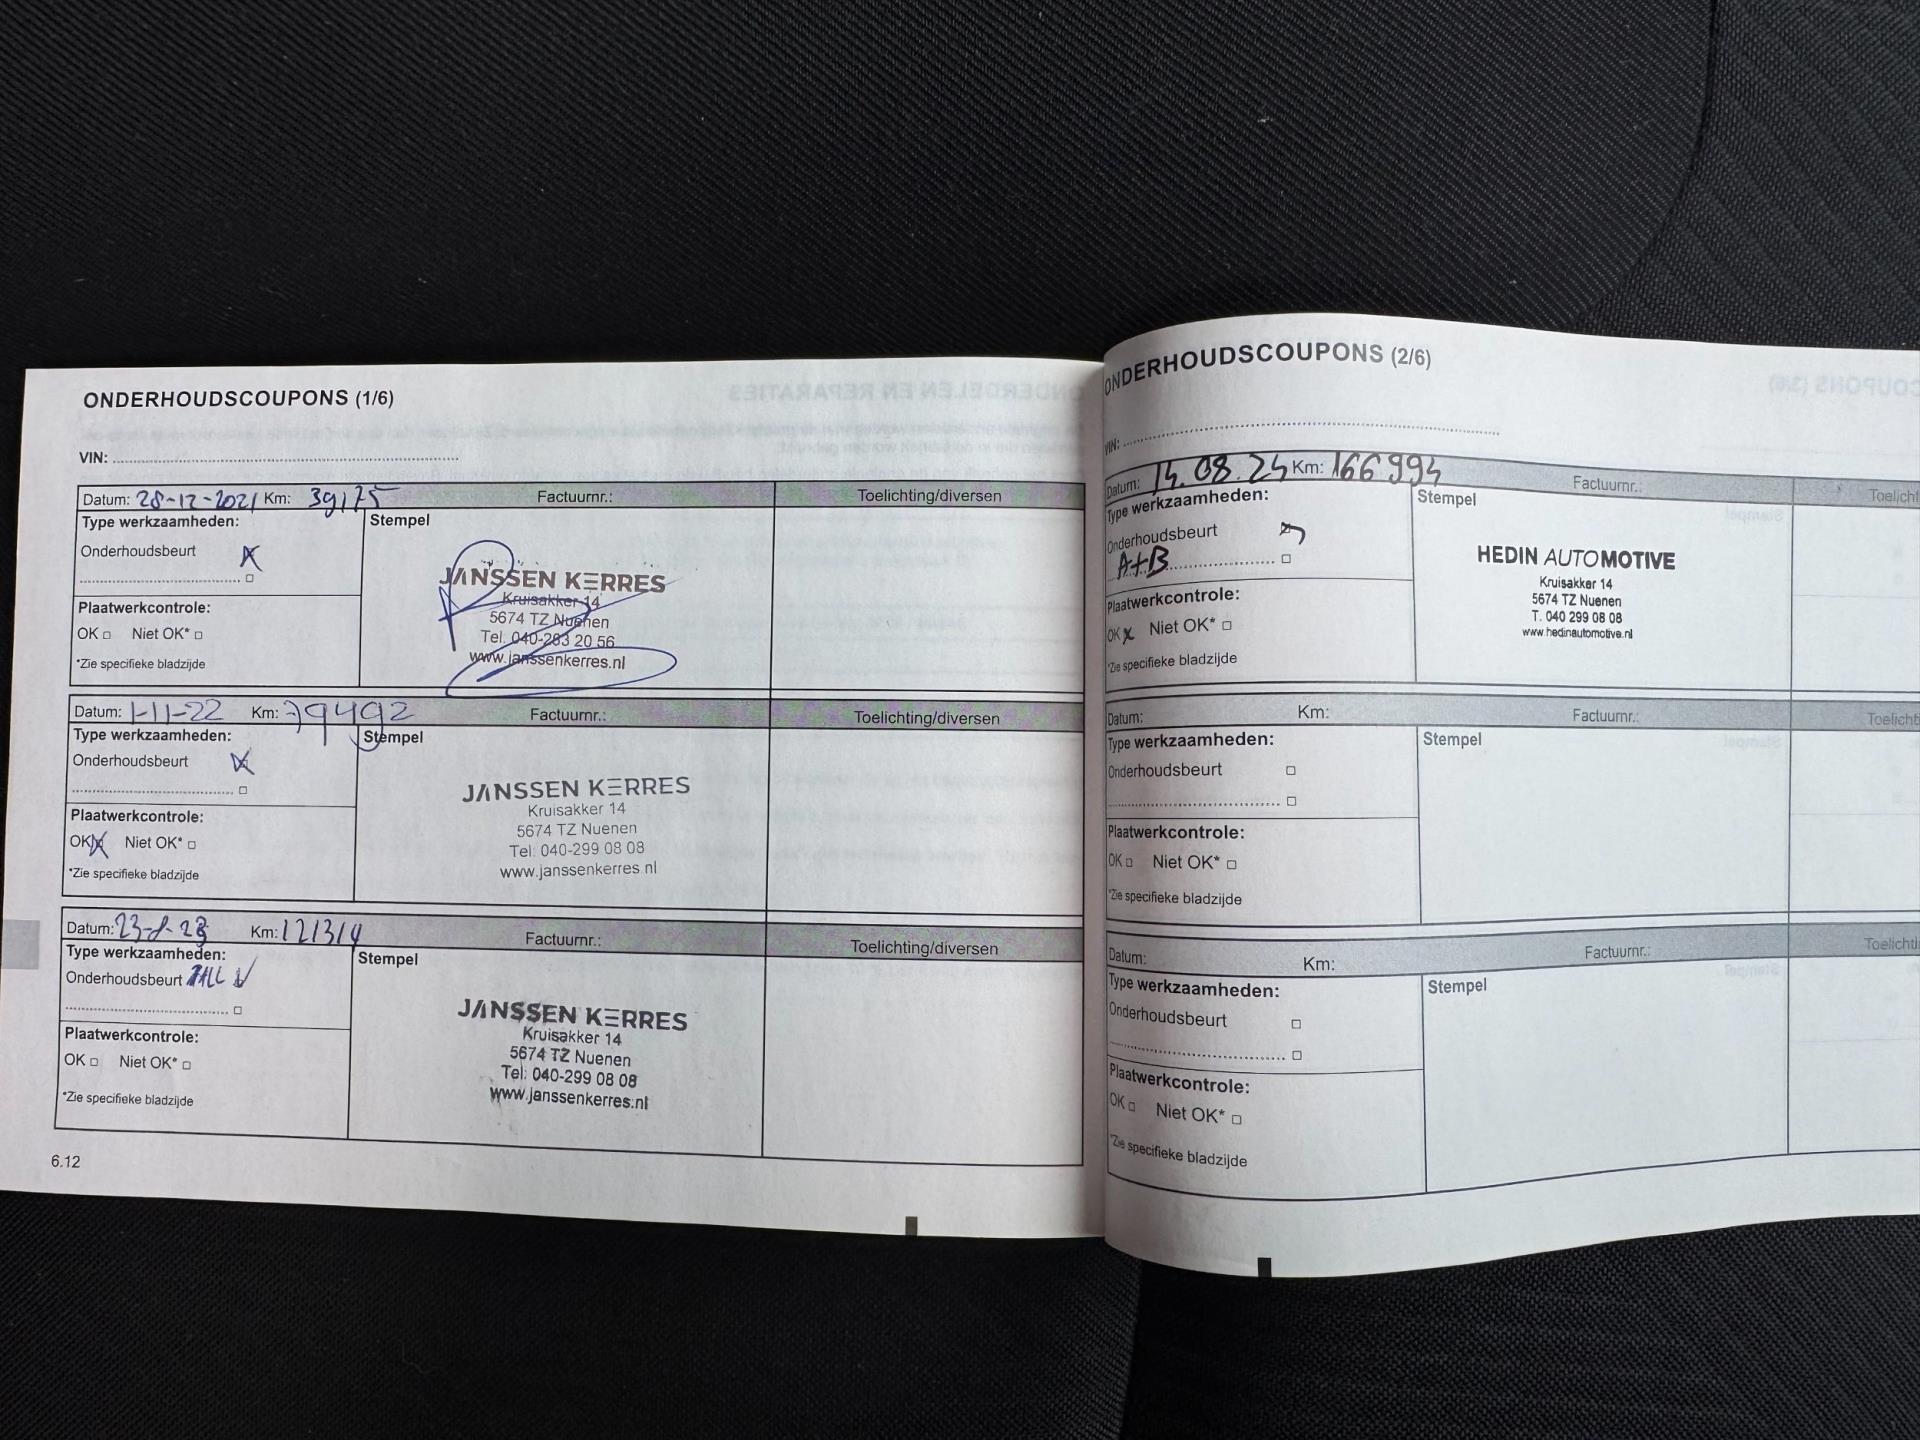 ONDERHOUDSCOUPONS (1/6)
VIN:
Datum: 28-12-2021 Km: 39175 Factuurnr.: Toelichting/diversen
Type werkzaamheden:
Stempel
Onderhoudsbeurt
Plaatwerkcontrole:
OK Niet OK*
*Zie specifieke bladzijde
JANSSEN KERRES
Kruisakker 14
5674 TZ Nuenen
Tel. 040-283 20 56
www.janssenkerres.nl
Datum: 1-11-22 Km: 79492 Factuurnr.: Toelichting/diversen
Type werkzaamheden:
Stempel
Onderhoudsbeurt
Plaatwerkcontrole:
OK Niet OK*
*Zie specifieke bladzijde
JANSSEN KERRES
Kruisakker 14
5674 TZ Nuenen
Tel: 040-299 08 08
www.janssenkerres.nl
Datum: 23-8-23 Km: 121314 Factuurnr.: Toelichting/diversen
Type werkzaamheden:
Stempel
Onderhoudsbeurt
Plaatwerkcontrole:
OK Niet OK*
*Zie specifieke bladzijde
JANSSEN KERRES
Kruisakker 14
5674 TZ Nuenen
Tel: 040-299 08 08
www.janssenkerres.nl
6.12
ONDERHOUDSCOUPONS (2/6)
VIN:
Datum: 14.08.24 Km: 166994 Factuurnr.: Toelicht
Type werkzaamheden:
Stempel
Onderhoudsbeurt
A+B
Plaatwerkcontrole:
OK Niet OK*
*Zie specifieke bladzijde
HEDIN AUTOMOTIVE
Kruisakker 14
5674 TZ Nuenen
T. 040 299 08 08
www.hedinautomotive.nl
Datum: Km: Factuurnr.: Toelicht
Type werkzaamheden:
Stempel
Onderhoudsbeurt
Plaatwerkcontrole:
OK Niet OK*
*Zie specifieke bladzijde
Datum: Km: Factuurnr.: Toelicht
Type werkzaamheden:
Stempel
Onderhoudsbeurt
Plaatwerkcontrole:
OK Niet OK*
*Zie specifieke bladzijde